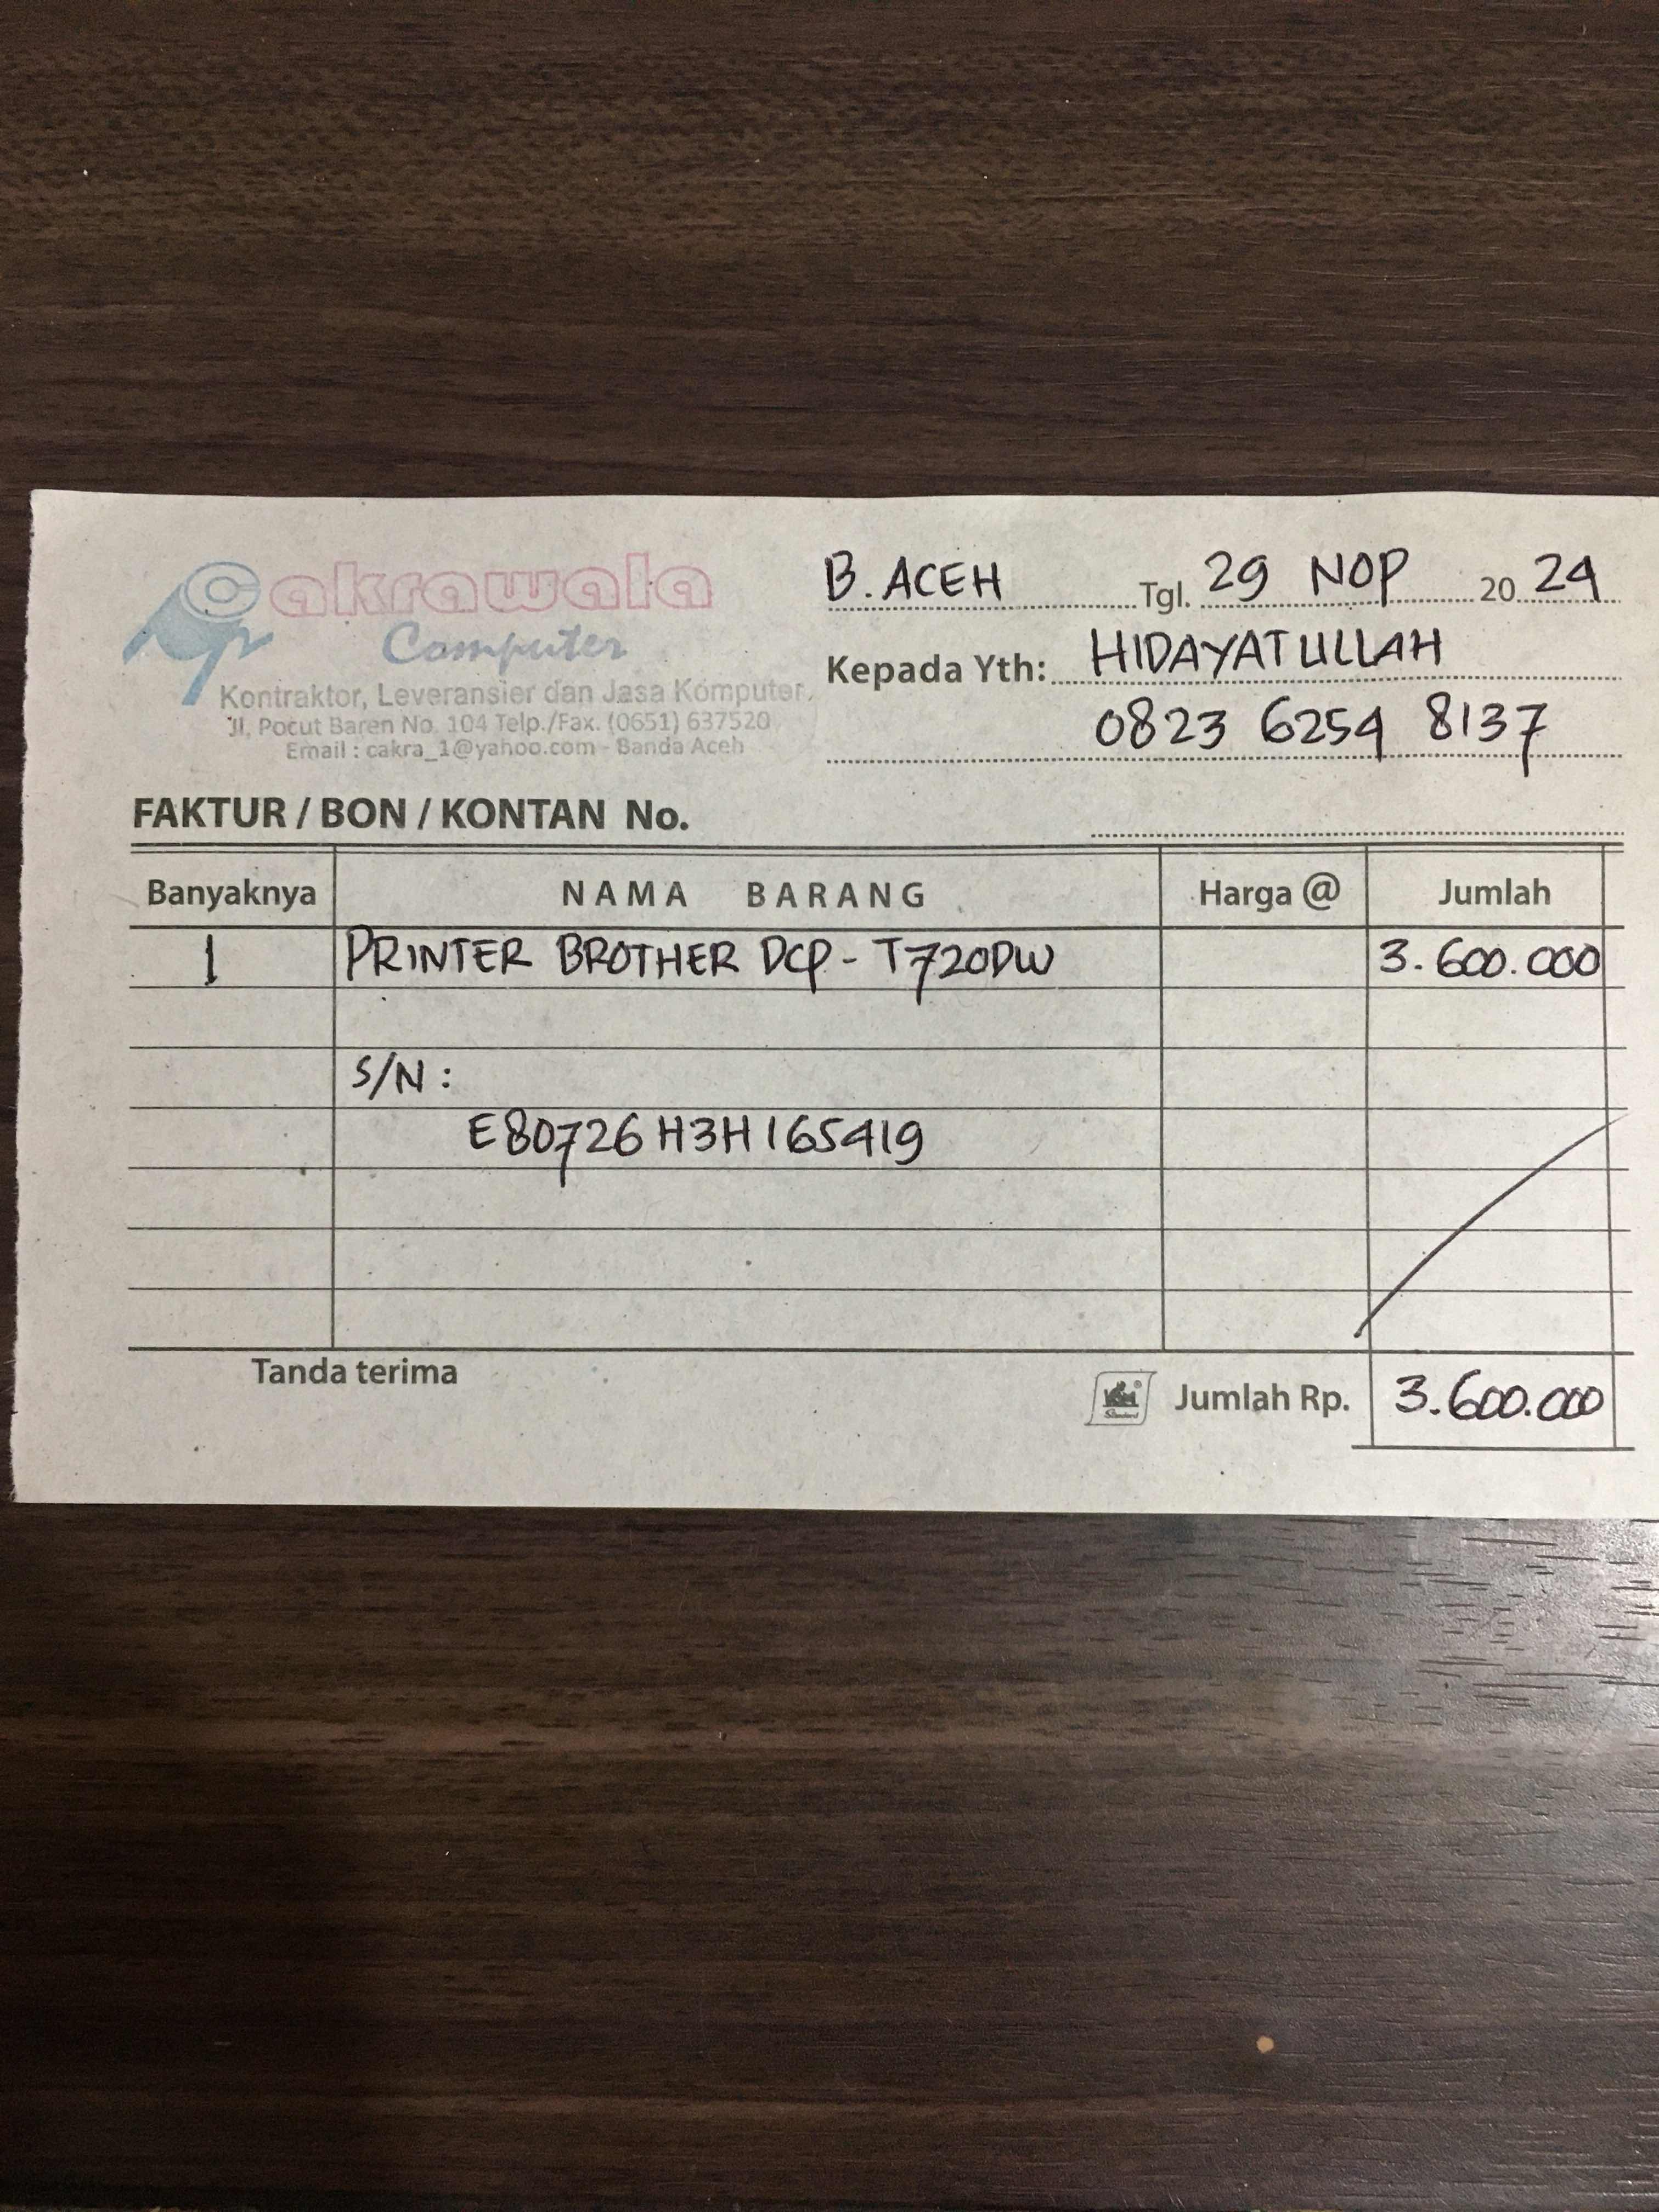 Cakrawala
Computer
Kontraktor, Leveransier dan Jasa Komputer.
Jl. Pocut Baren No. 104 Telp./Fax. (0651) 637520
Email : cakra_1@yahoo.com - Banda Aceh
B. ACEH Tgl. 29 NOP 2024
Kepada Yth: HIDAYATULLAH
0823 6254 8137
FAKTUR / BON / KONTAN No.
Banyaknya NAMA BARANG Harga @ Jumlah
1 PRINTER BROTHER DCP-T720DW 3.600.000
S/N :
E80726H3H165419
Tanda terima Jumlah Rp. 3.600.000